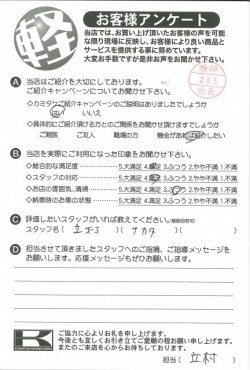 軽
お客様アンケート
当店では、お買い上げ頂いたお客様の声を可能
な限り現場に反映し、お客様により良い商品と
サービスを提供する事に努めています。
大変お手数ですが是非お声をお聞かせ下さい。
検印
2.6.5
社長
A 当店はご紹介を大切にしております。
ご紹介キャンペーンについてお聞かせ下さい。
◇カミタケご紹介キャンペーンのご説明はありましたでしょうか
はい いいえ
◇具体的にご紹介頂ける方とのご関係をお聞かせ頂けますでしょうか
ご親族 ご友人 職場の方 機会があれば紹介したい
B 当店を実際にご利用になった印象をお聞かせ下さい。
◇総合的な満足度 5.大満足 4.満足 3.ふつう 2.やや不満 1.不満
◇スタッフの対応 5.大満足 4.満足 3.ふつう 2.やや不満 1.不満
◇お店の雰囲気、清潔 5.大満足 4.満足 3.ふつう 2.やや不満 1.不満
◇納車時のお車の状態 5.大満足 4.満足 3.ふつう 2.やや不満 1.不満
C 評価したいスタッフがいれば教えてください。(複数回答可)
スタッフ名( )( )( )
D 担当させて頂きましたスタッフへのご指摘、ご指導メッセージを
お願いします。応援メッセージもぜひお願いします。
K
ご協力に心よりお礼を申し上げます。
今後とも宜しくお引き立てご愛顧の程お願い申し上げます。
またのご来店を心からお待ちしております。
担当( 立村 )